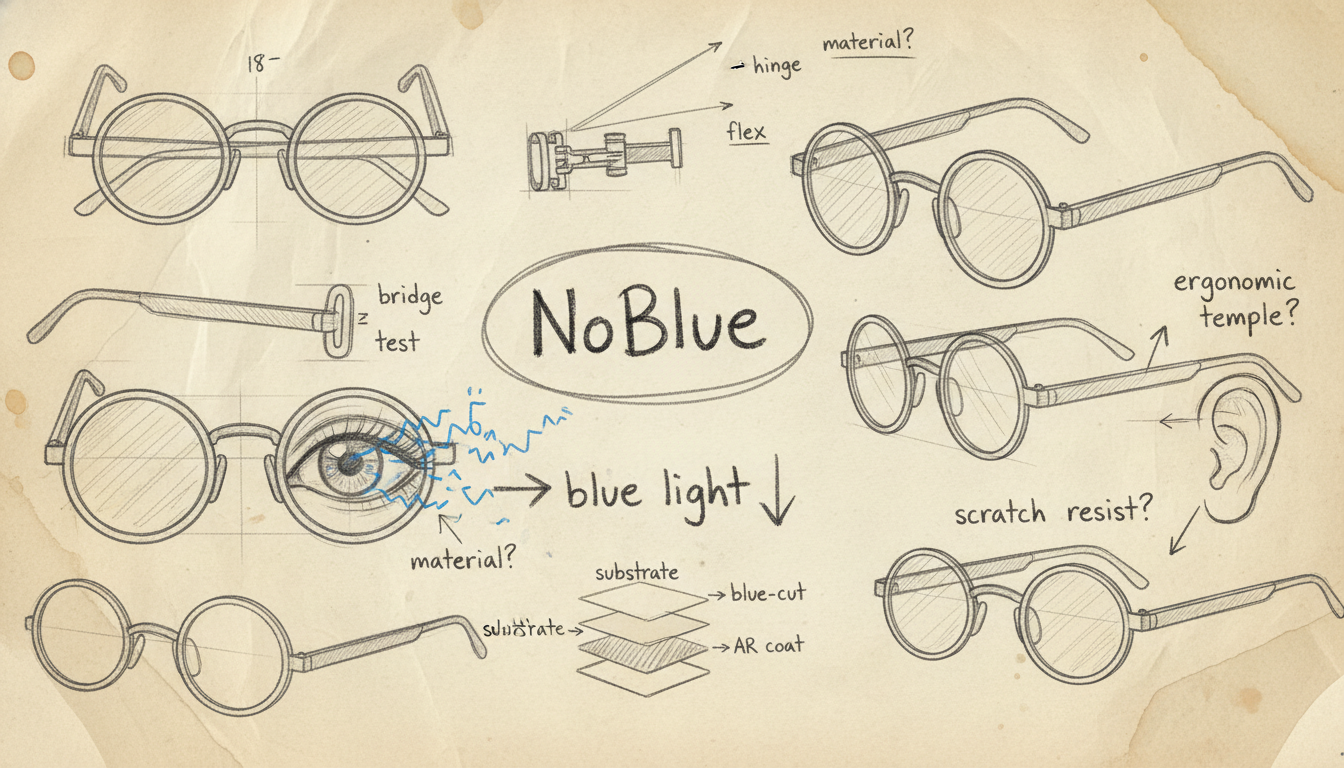 18-
material?
- hinge
flex
bridge
test
NoBlue
ergonomic
temple?
blue light
scratch resist?
material?
substrate
blue-cut
AR coat